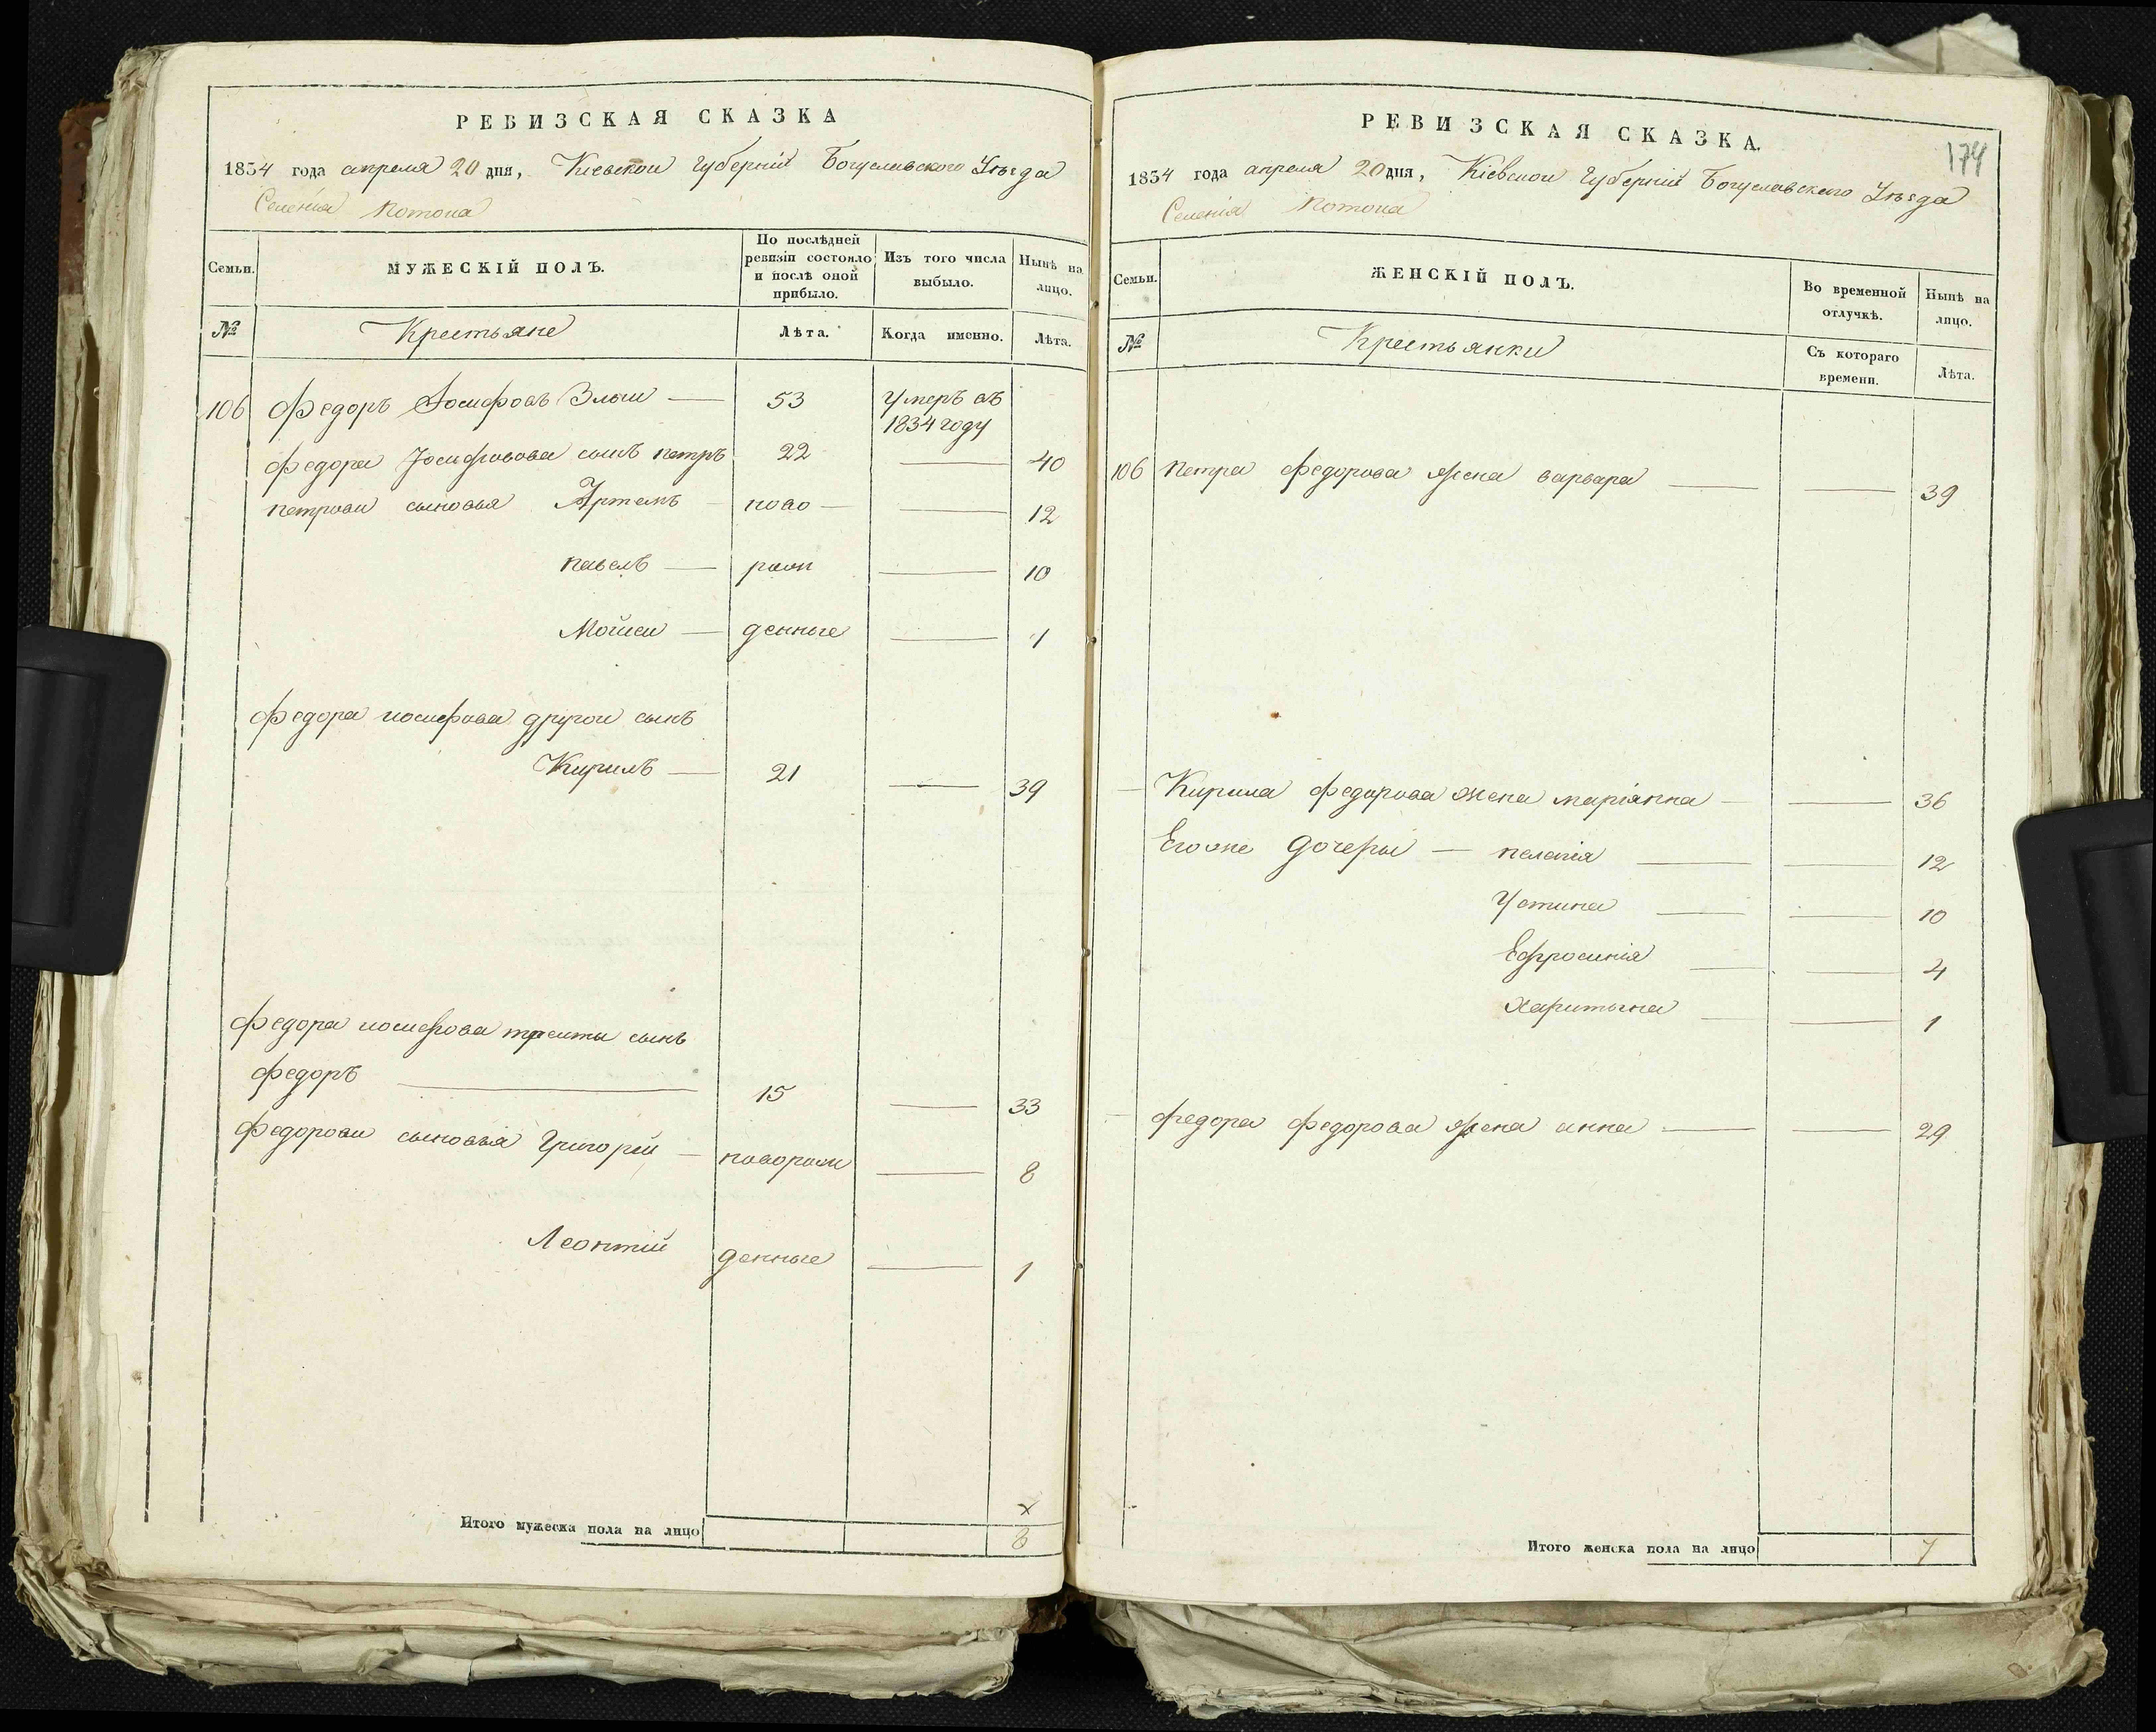 РЕВИЗСКАЯ СКАЗКА
1854 года апреля 20 дня, Киевской Губерніи Богуславского Уѣзда
Селенія Потока
Семьи.
МУЖЕСКІЙ ПОЛЪ.
По послѣдней ревизіи состояло и послѣ оной прибыло.
Изъ того числа выбыло.
Нынѣ на лицо.
№
Крестьяне
Лѣта.
Когда именно.
Лѣта.
106 Федоръ Иосифовъ Злыи — 53 Умеръ въ
1834 году
Федора Иосифовова сынъ петръ 22 — 40
петрови сыновья Артемъ — ново — — 12
павелъ — рож — 10
Мойсеи — денные — 1
Федора иосифова другои сынъ
Кирилъ — 21 — 39
Федора иосифова третьи сынъ
Федоръ — 15 — 33
Федорови сыновья Григорій — новорож — 8
Леонтій денные — 1
Итого мужеска пола на лицо
8
РЕВИЗСКАЯ СКАЗКА.
174
1854 года апреля 20 дня, Кіевской Губерніи Богуславского Уѣзда
Селенія Потока
Семьи.
ЖЕНСКІЙ ПОЛЪ.
Во временной отлучкѣ.
Нынѣ на лицо.
№
Крестьянки
Съ котораго времени.
Лѣта.
106 Петра Федорова жена варвара — — 39
— Кирила Федорова жена маріянна — — 36
Егоже дочеры — пелагія — — 12
Устина — — 10
Ефросинія — — 4
Харитына — — 1
— Федора Федорова жена анна — — 29
Итого женска пола на лицо 7